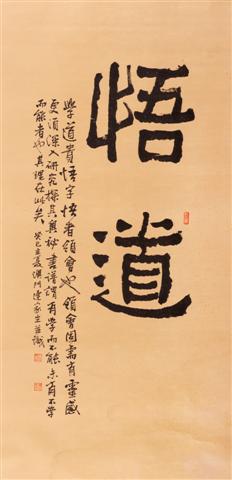 悟道
學道貴悟字悟者領會也領會固需有靈感
更須深入研究探其奧秘書譜謂有學而不能未有不學
而能者也其理在此矣 癸巳立夏澳門連家生並識